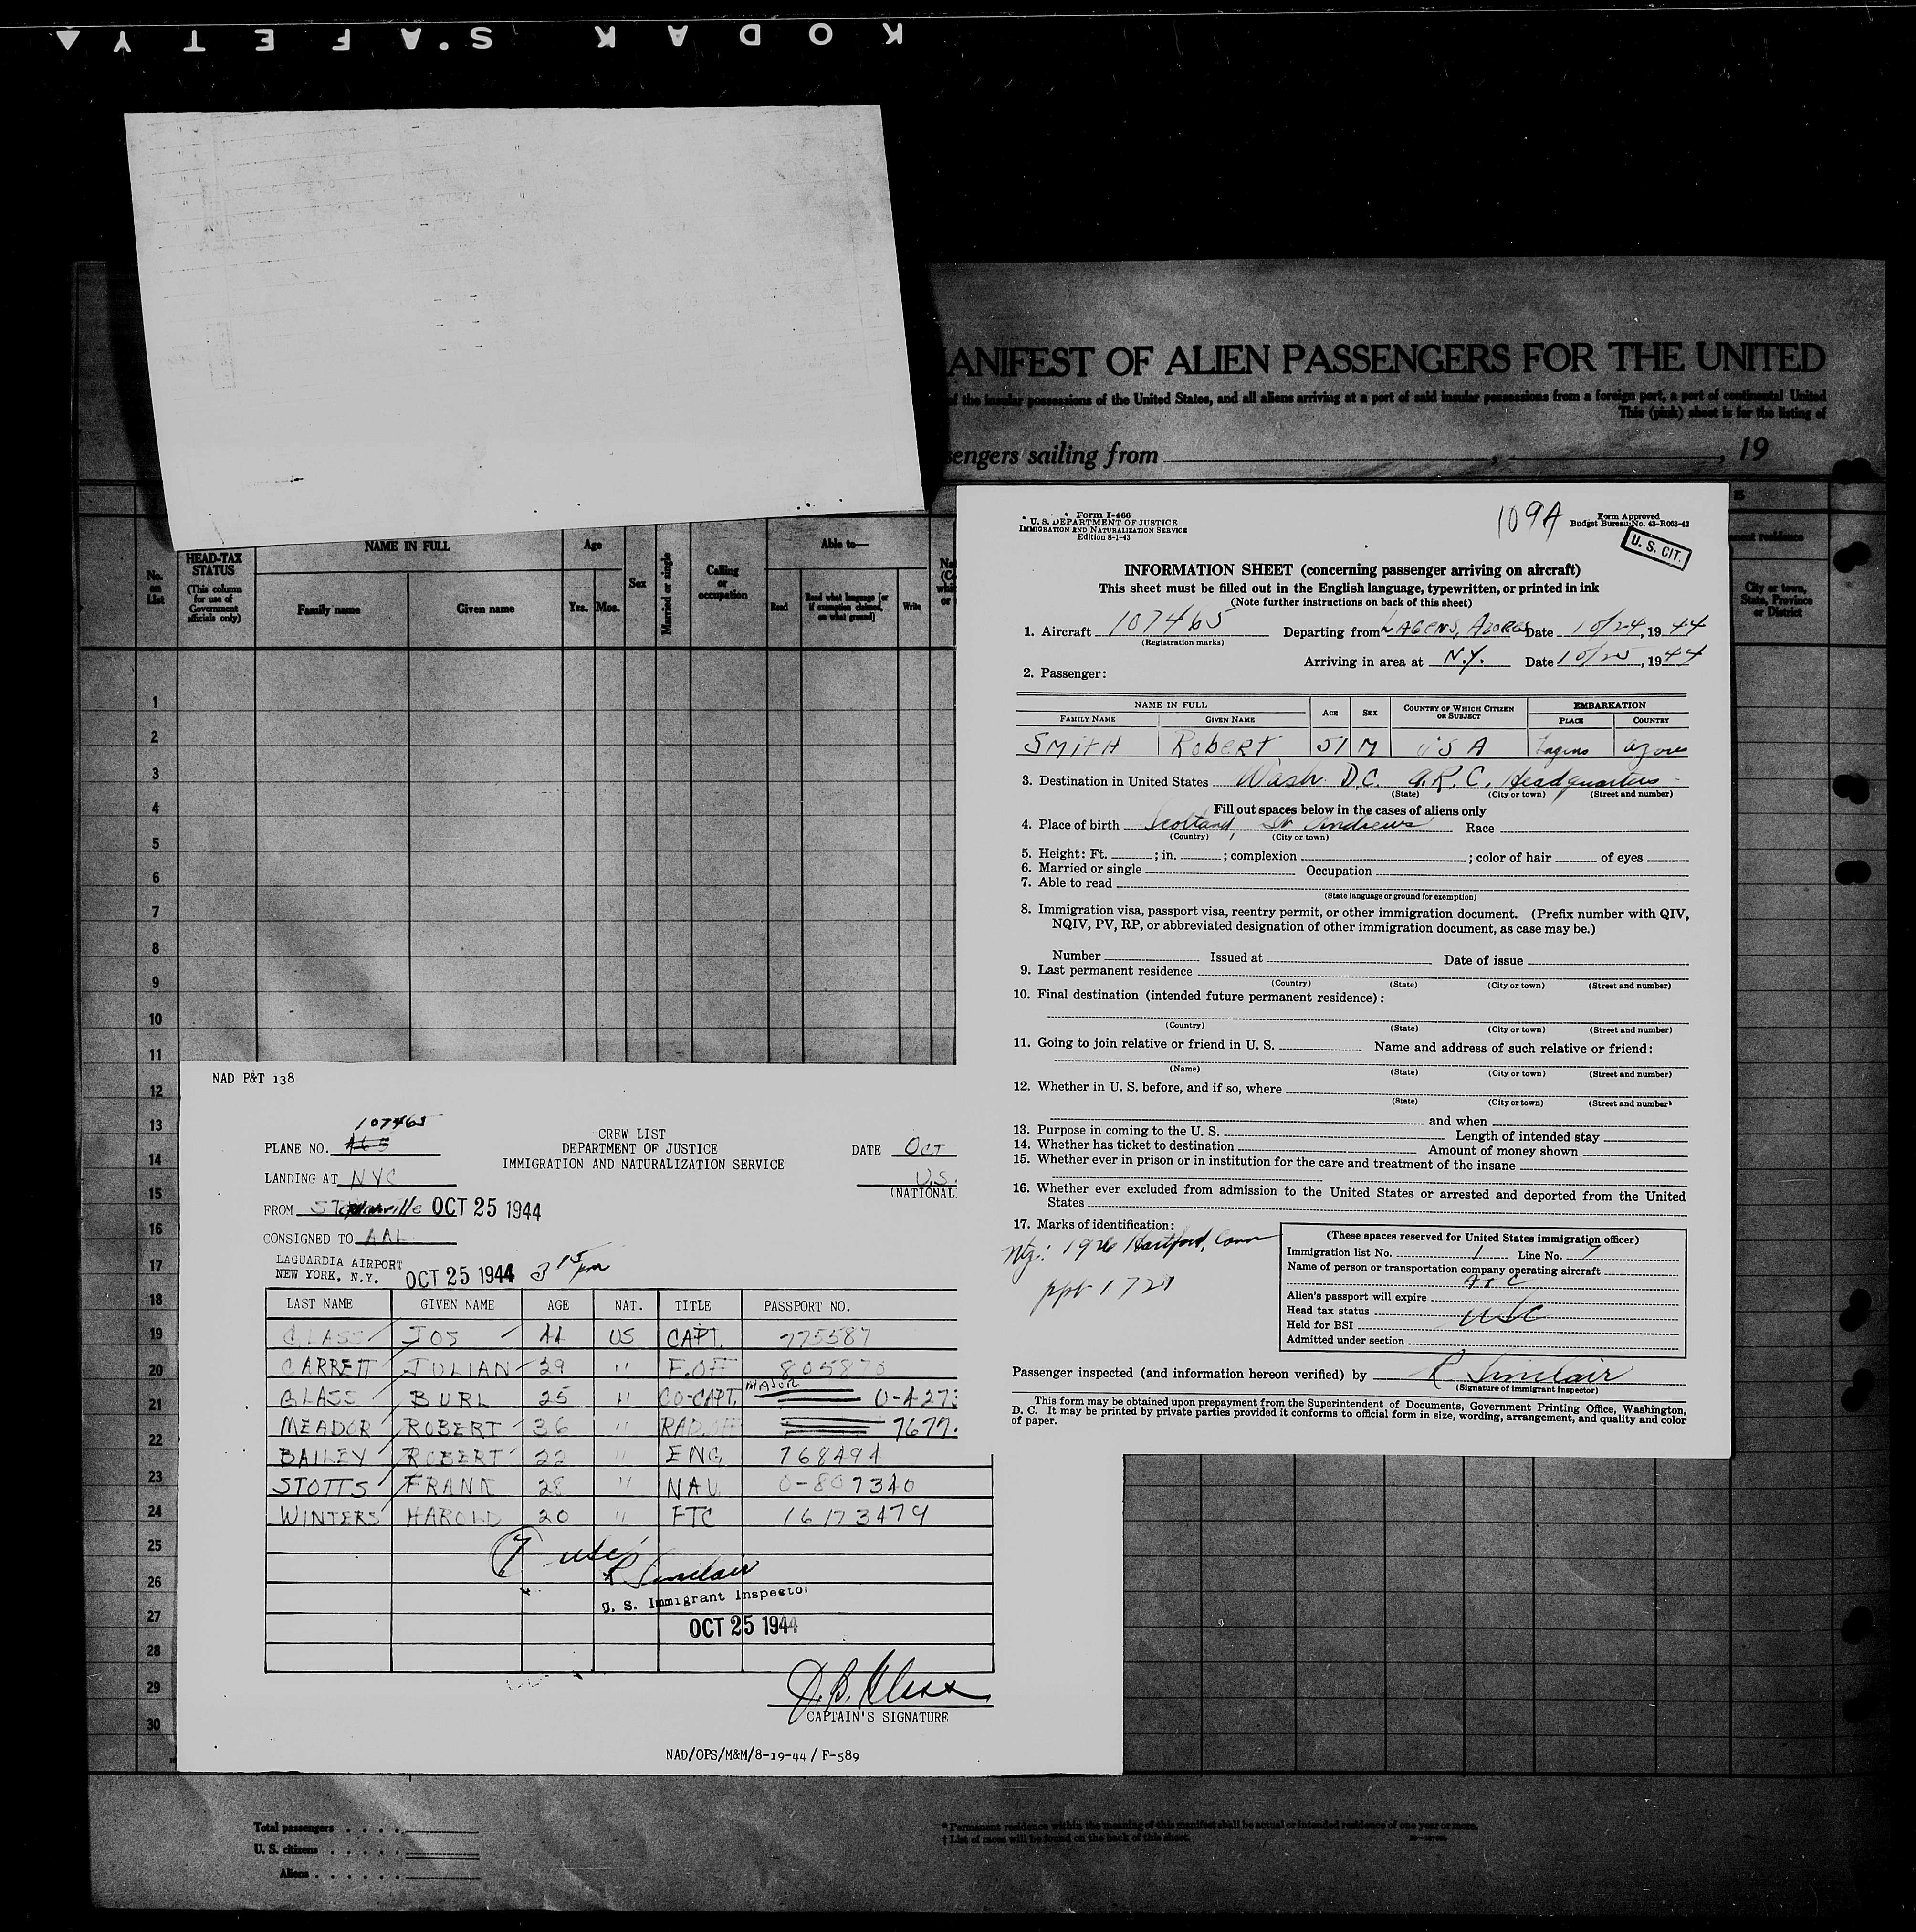 KODAK SAFETY
ANIFEST OF ALIEN PASSENGERS FOR THE UNITED
of the insular possessions of the United States, and all aliens arriving at a port of said insular possessions from a foreign port, a port of continental United
This (pink) sheet is for the listing of
sengers sailing from , , 19
15
No. on List
HEAD-TAX STATUS
(This column for use of Government officials only)
NAME IN FULL
Family name
Given name
Age
Yrs. Mos.
Sex
Married or single
Calling or occupation
Able to—
Read
Read what language [or if exemption claimed, on what ground]
Write
City or town, State, Province or District
1
2
3
4
5
6
7
8
9
10
11
12
13
14
15
16
17
18
19
20
21
22
23
24
25
26
27
28
29
30
Form I-466
U. S. DEPARTMENT OF JUSTICE
IMMIGRATION AND NATURALIZATION SERVICE
Edition 8-1-43
109A
Form Approved
Budget Bureau No. 43-R063-42
U. S. CIT.
INFORMATION SHEET (concerning passenger arriving on aircraft)
This sheet must be filled out in the English language, typewritten, or printed in ink
(Note further instructions on back of this sheet)
1. Aircraft 107465 Departing from LAGENS, AZORES Date 10/24, 1944
(Registration marks)
Arriving in area at N.Y. Date 10/25, 1944
2. Passenger:
NAME IN FULL
FAMILY NAME GIVEN NAME AGE SEX COUNTRY OF WHICH CITIZEN OR SUBJECT EMBARKATION
PLACE COUNTRY
SMITH Robert 51 M USA Lagens Azores
3. Destination in United States Wash. D.C. A.R.C. Headquarters
(State) (City or town) (Street and number)
Fill out spaces below in the cases of aliens only
4. Place of birth Scotland, St Andrews Race
(Country) (City or town)
5. Height: Ft. ; in. ; complexion ; color of hair of eyes
6. Married or single Occupation
7. Able to read
(State language or ground for exemption)
8. Immigration visa, passport visa, reentry permit, or other immigration document. (Prefix number with QIV,
NQIV, PV, RP, or abbreviated designation of other immigration document, as case may be.)
Number Issued at Date of issue
9. Last permanent residence
(Country) (State) (City or town) (Street and number)
10. Final destination (intended future permanent residence):
(Country) (State) (City or town) (Street and number)
11. Going to join relative or friend in U. S. Name and address of such relative or friend:
(Name) (State) (City or town) (Street and number)
12. Whether in U. S. before, and if so, where
(State) (City or town) (Street and number)
and when
13. Purpose in coming to the U. S. Length of intended stay
14. Whether has ticket to destination Amount of money shown
15. Whether ever in prison or in institution for the care and treatment of the insane
16. Whether ever excluded from admission to the United States or arrested and deported from the United
States
17. Marks of identification:
Ntz: 1926 Hartford, Conn
ppt 1721
(These spaces reserved for United States immigration officer)
Immigration list No. 1 Line No. 7
Name of person or transportation company operating aircraft
ATC
Alien's passport will expire
Head tax status USC
Held for BSI
Admitted under section
Passenger inspected (and information hereon verified) by R Sinclair
(Signature of immigrant inspector)
This form may be obtained upon prepayment from the Superintendent of Documents, Government Printing Office, Washington,
D. C. It may be printed by private parties provided it conforms to official form in size, wording, arrangement, and quality and color
of paper.
NAD P&T 138
107465
PLANE NO.
CREW LIST
DEPARTMENT OF JUSTICE
IMMIGRATION AND NATURALIZATION SERVICE
DATE OCT
LANDING AT NYC
U.S.
(NATIONAL
FROM Stephenville OCT 25 1944
CONSIGNED TO AAL
LAGUARDIA AIRPORT
NEW YORK, N.Y. OCT 25 1944 3 15 pm
LAST NAME GIVEN NAME AGE NAT. TITLE PASSPORT NO.
GLASS JOS 44 US CAPT. 775587
GARRETT JULIAN 29 " F.OFF 805870
GLASS BURL 25 " CO-CAPT. MAJOR 0-4273
MEADOR ROBERT 36 " RAD.OFF 7677
BAILEY ROBERT 22 " ENG 768494
STOTTS FRANK 28 " NAV. 0-807340
WINTERS HAROLD 20 " FTC 16173479
7 USC
R Sinclair
U. S. Immigrant Inspector
OCT 25 1944
J. B. Glass
CAPTAIN'S SIGNATURE
NAD/OPS/M&M/8-19-44/F-589
Total passengers
U. S. citizens
Aliens
* Permanent residence within the meaning of this manifest shall be actual or intended residence of one year or more.
† List of races will be found on the back of this sheet.